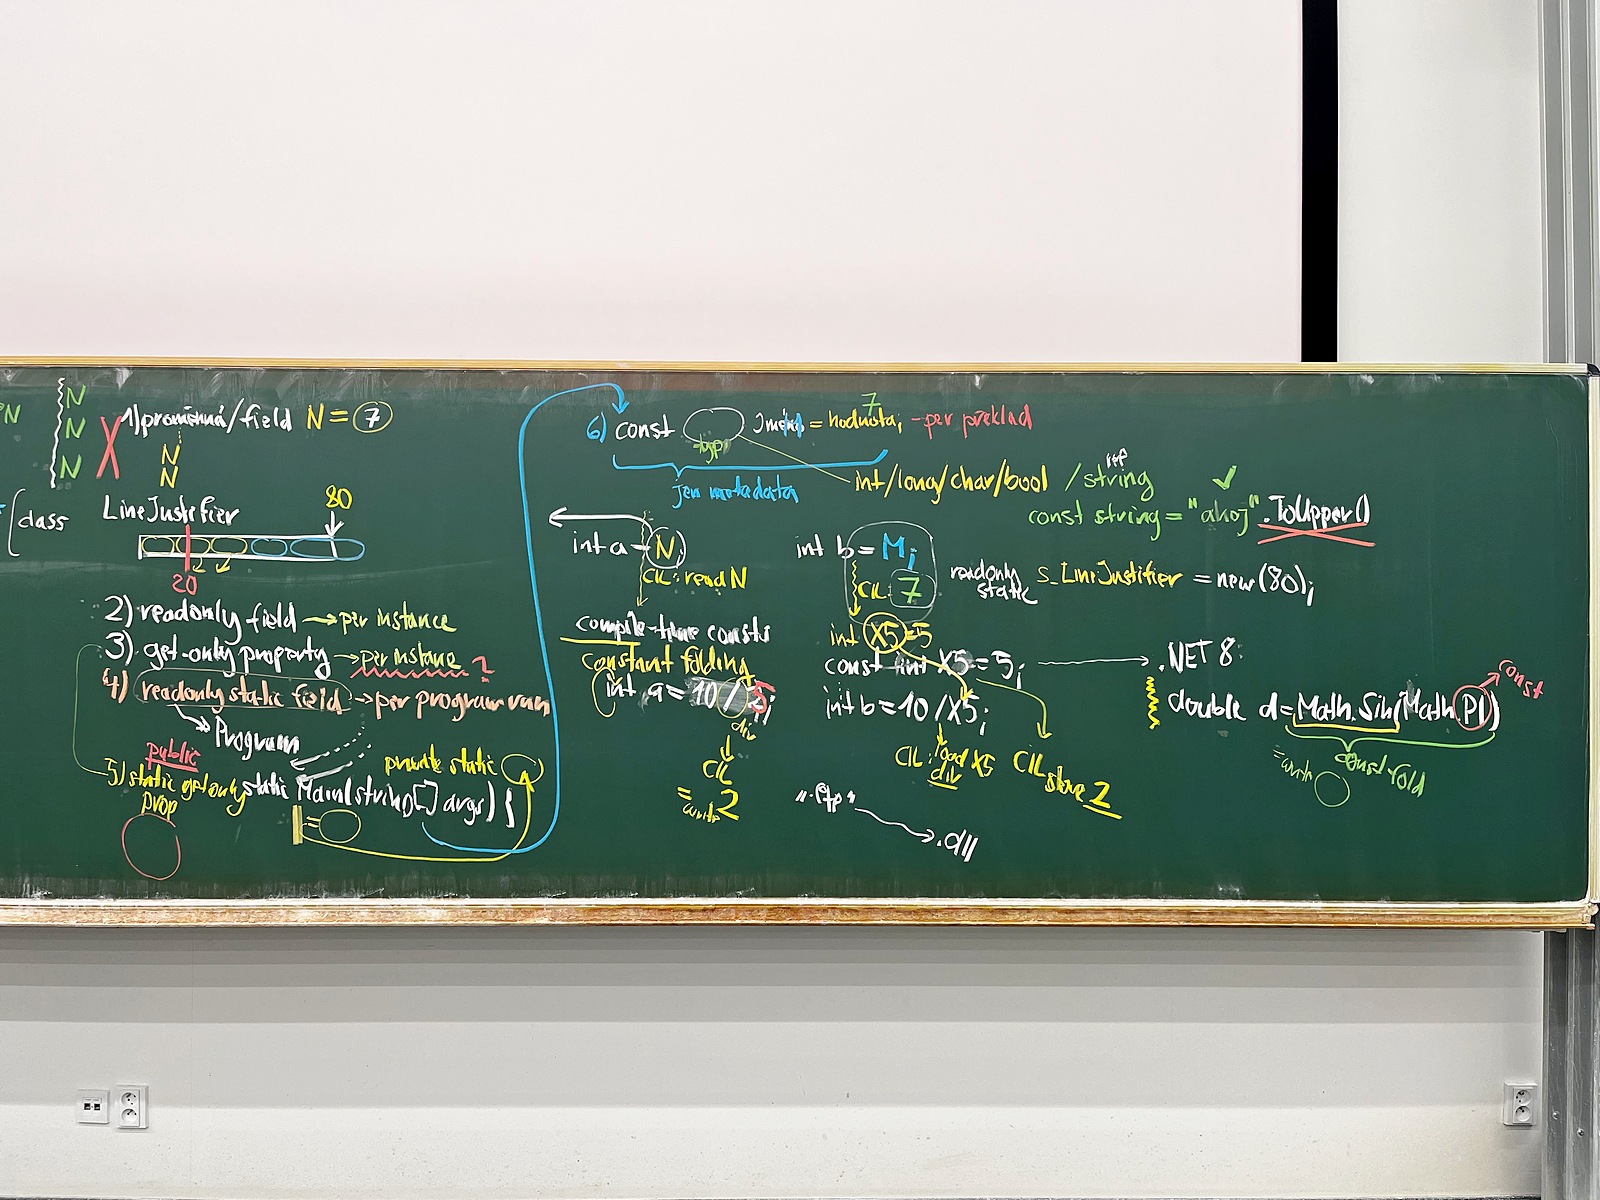 N
N
N
N
1) proměnná/field N = 7
N
N
class
LineJustifier
80
20
2) readonly field → per instance
3) get-only property → per instance ?
4) readonly static field → per program run
Program
public
private static
5) static getonly prop
static Main(string[] args) {
=
6) const typ Jméno = hodnota; - per překlad
7
jen metadata
int/long/char/bool / string
ref
const string = "ahoj".ToUpper()
int a = N;
CIL: read N
int b = M;
CIL: 7
readonly static s_LineJustifier = new(80);
compile-time consts
constant folding
int a = 10 / 5;
div
CIL
= write 2
int X5 = 5
const int X5 = 5;
int b = 10 / X5;
CIL: load X5
div
CIL store 2
.dll
.NET 8
double d = Math.Sin(Math.PI)
const
const fold